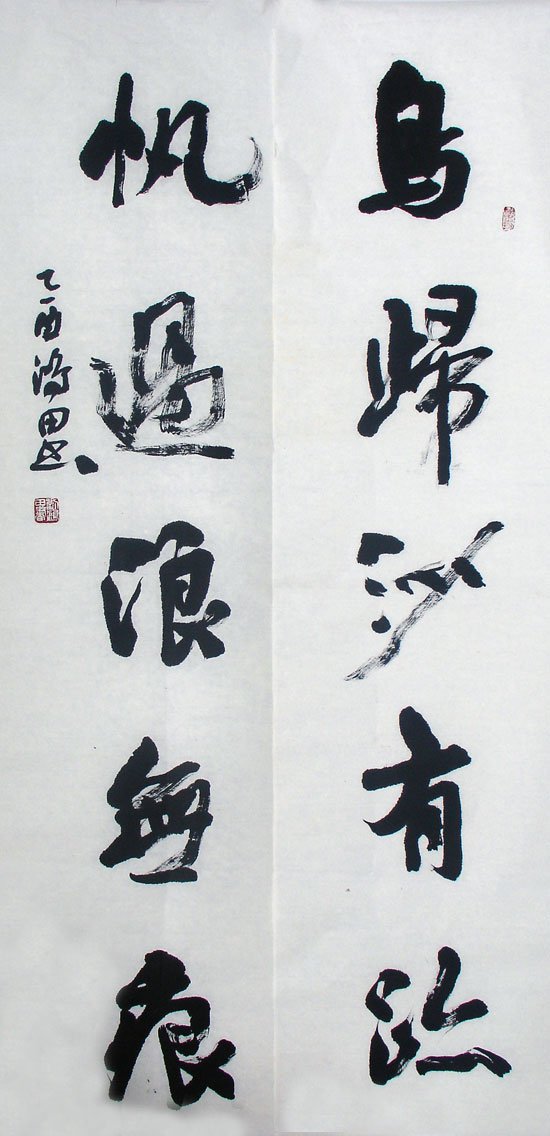 鳥歸沙有跡
帆過浪無痕
乙酉 田书